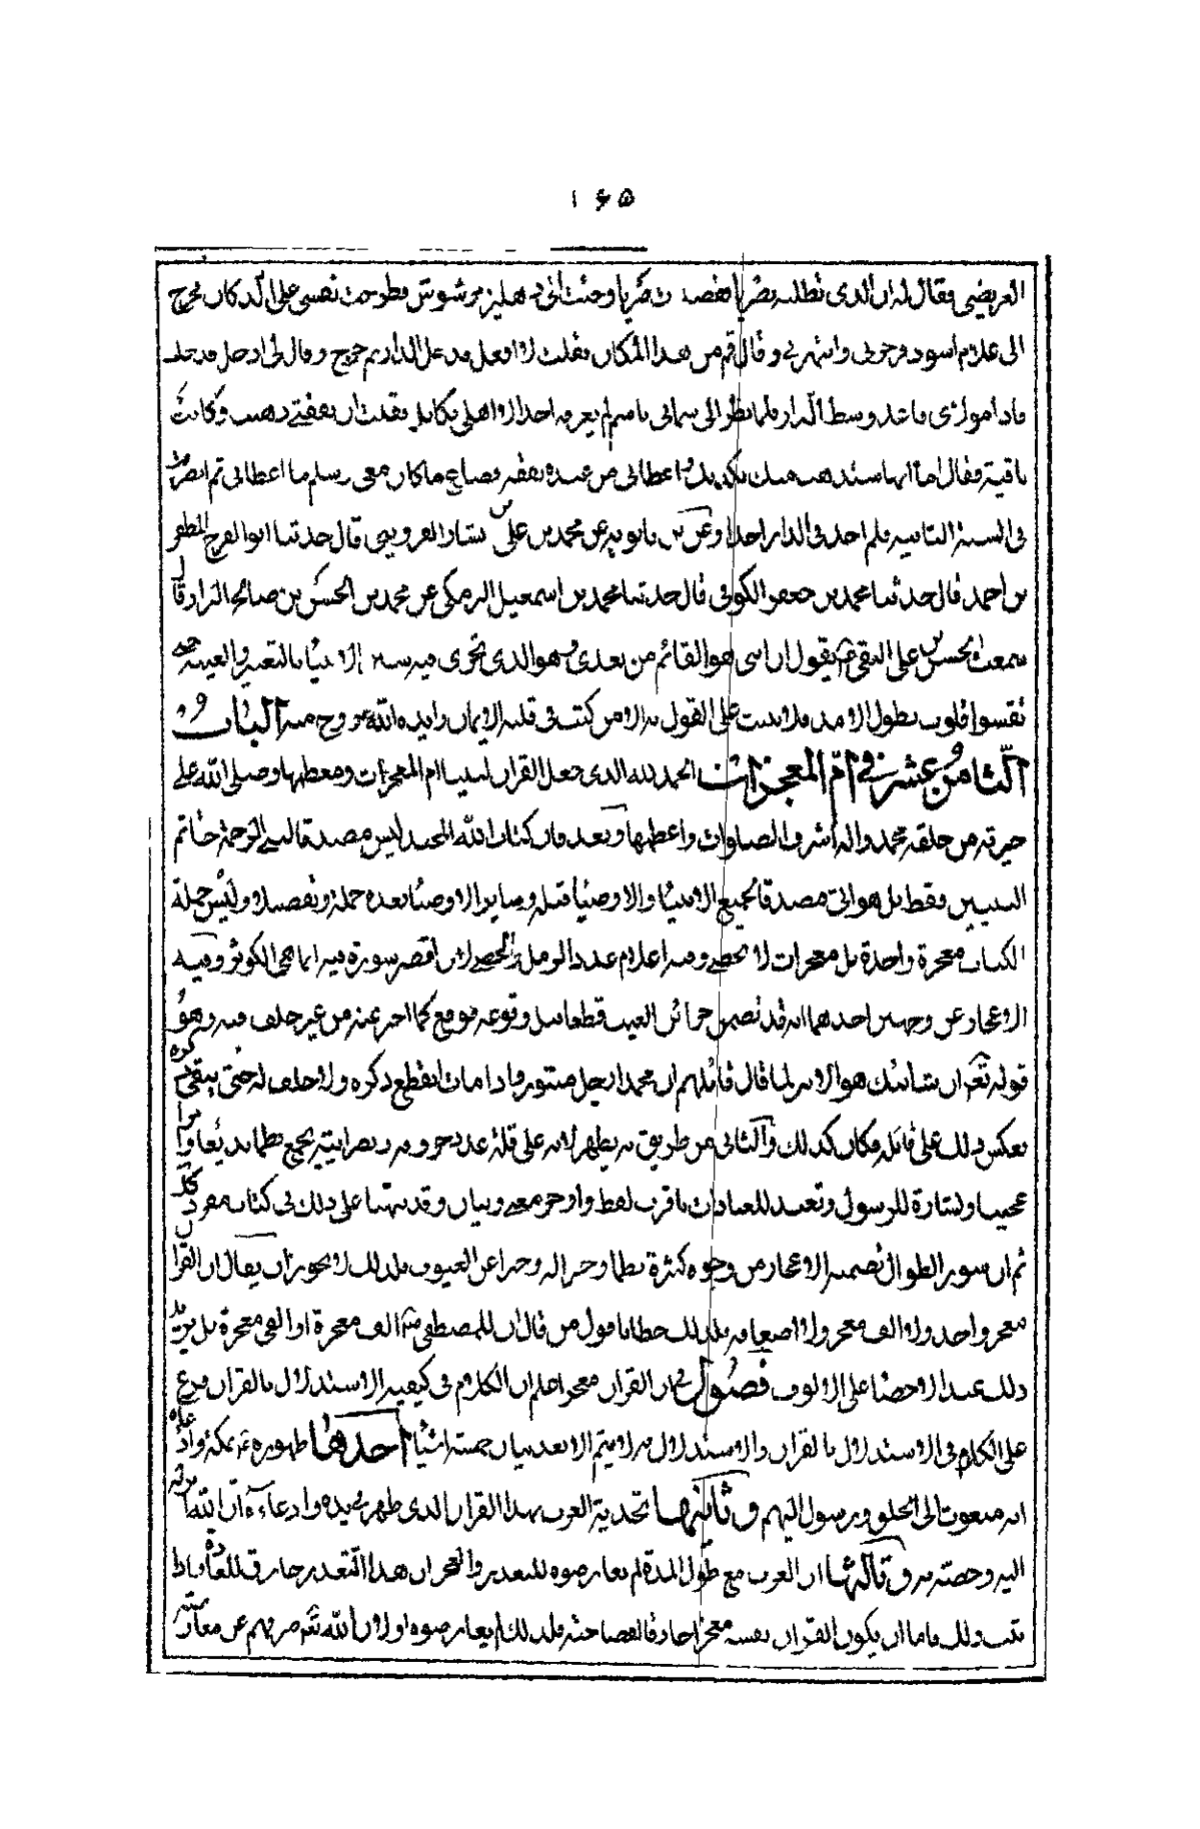 ١٦٥
العريضي فقال له ان الذى تطلبه بصريا فقصدت صريا وجئت الى دهليز مرشوش فطرحت نفسى على الدكان فخرج
الى غلام اسود فزجرنى وانتهرنى وقال قم من هذا المكان فقلت لا افعل فدخل الدار ثم خرج وقال لى ادخل فدخلت
فاذا مولاى قاعد وسط الدار فلما نظر الى سمانى باسم لم يعرفه احد الا اهلى بكابل فقلت ان نفقتى ذهبت وكانت
باقية فقال اما انها ستذهب منك بكذبك واعطانى من عنده نفقة فضاع ما كان معى وسلم ما اعطانى ثم انصرفت
فى السنة الثانية فلم اجد فى الدار احدا وعن بن بابويه عن محمد بن على بن بشار القزوينى قال حدثنا ابو الفرج المظفر
بن احمد قال حدثنا محمد بن جعفر الكوفى قال حدثنا محمد بن اسمعيل البرمكى عن محمد بن الحسن بن صالح البزاز قال
سمعت الحسن بن على النقى ع يقول ان ابنى هو القائم من بعدى وهو الذى تجرى فيه سنن الانبياء بالتعمير والغيبة حتى
تقسوا قلوب بطول الامد فلا يثبت على القول به الا من كتب فى قلبه الايمان وايده الله بروح منه الباب
الثامن عشر فى ام المعجزات الحمد لله الذى جعل القران لنبينا ام المعجزات ومعظمها وصلى الله على
خيرته من خلقه محمد واله اشرف الصلوات واعظمها وبعد فان كتاب الله المجيد ليس مصدقا لنبى الرحمة خاتم
النبيين فقط بل هو اتى مصدقا لجميع الانبياء والاوصياء قبله وساير الاوصياء بعده جملة وتفصيلا وليس جملة
الكتاب معجزة واحدة بل معجزات لا تحصى وفيه اعلام عدد الرمل والحصى لان اقصر سورة فيه انما هى الكوثر وفيه
الاعجاز عن وجهين احدهما انه قد تضمن خبرا عن الغيب قطعا قبل وقوعه فوقع كما اخبر عنه من غير خلف فيه وهو
قوله تعم ان شانئك هو الابتر لما قال قائلهم ان محمدا رجل صنبور فاذا مات انقطع ذكره ولا خلف له حتى يبقى به ذكره
فعكس ذلك على قائله فكان كذلك والثانى من طريق نظمه لانه على قلة عدد حروفه وقصر ايته يجمع نظما بديعا وامرا
عجيبا وبشارة للرسول وتعبدا للعبادات باقرب لفظ واوجز معنى وبيان وقد نبهنا على ذلك فى كتاب مفرد لذلك
ثم ان سور الطوال تضمنت الاعجاز من وجوه كثيرة نظما وجزالة وخبرا عن الغيوب فلذلك لا يجوز ان يقال ان القران
معجز واحد ولا الف معجز ولا اضعافه فلذلك خطأنا قول من قال ان للمصطفى ص الف معجزة او الفى معجزة بل يزيد
ذلك عند الاحصاء على الالوف فصول فى ان القران معجز اعلم ان الكلام فى كيفية الاستدلال بالقران فرع
على الكلام فى الاستدلال بالقران والاستدلال به لا يتم الا بعد بيان خمسة اشياء احدها ظهوره ع بمكة وادعاؤه
انه مبعوث الى الخلق ورسول اليهم وثانيها تحديه العرب بهذا القران الذى ظهر على يده وادعاءه ان الله انزله
اليه وخصه به وثالثها ان العرب مع طول المدة لم يعارضوه للتعذر والعجز ان هذا التعذر خارق للعادة فاذا
ثبت ذلك فاما ان يكون القران نفسه معجزا خارقا لفصاحته فلذلك لم يعارضوه او لان الله تعم صرفهم عن معارضته